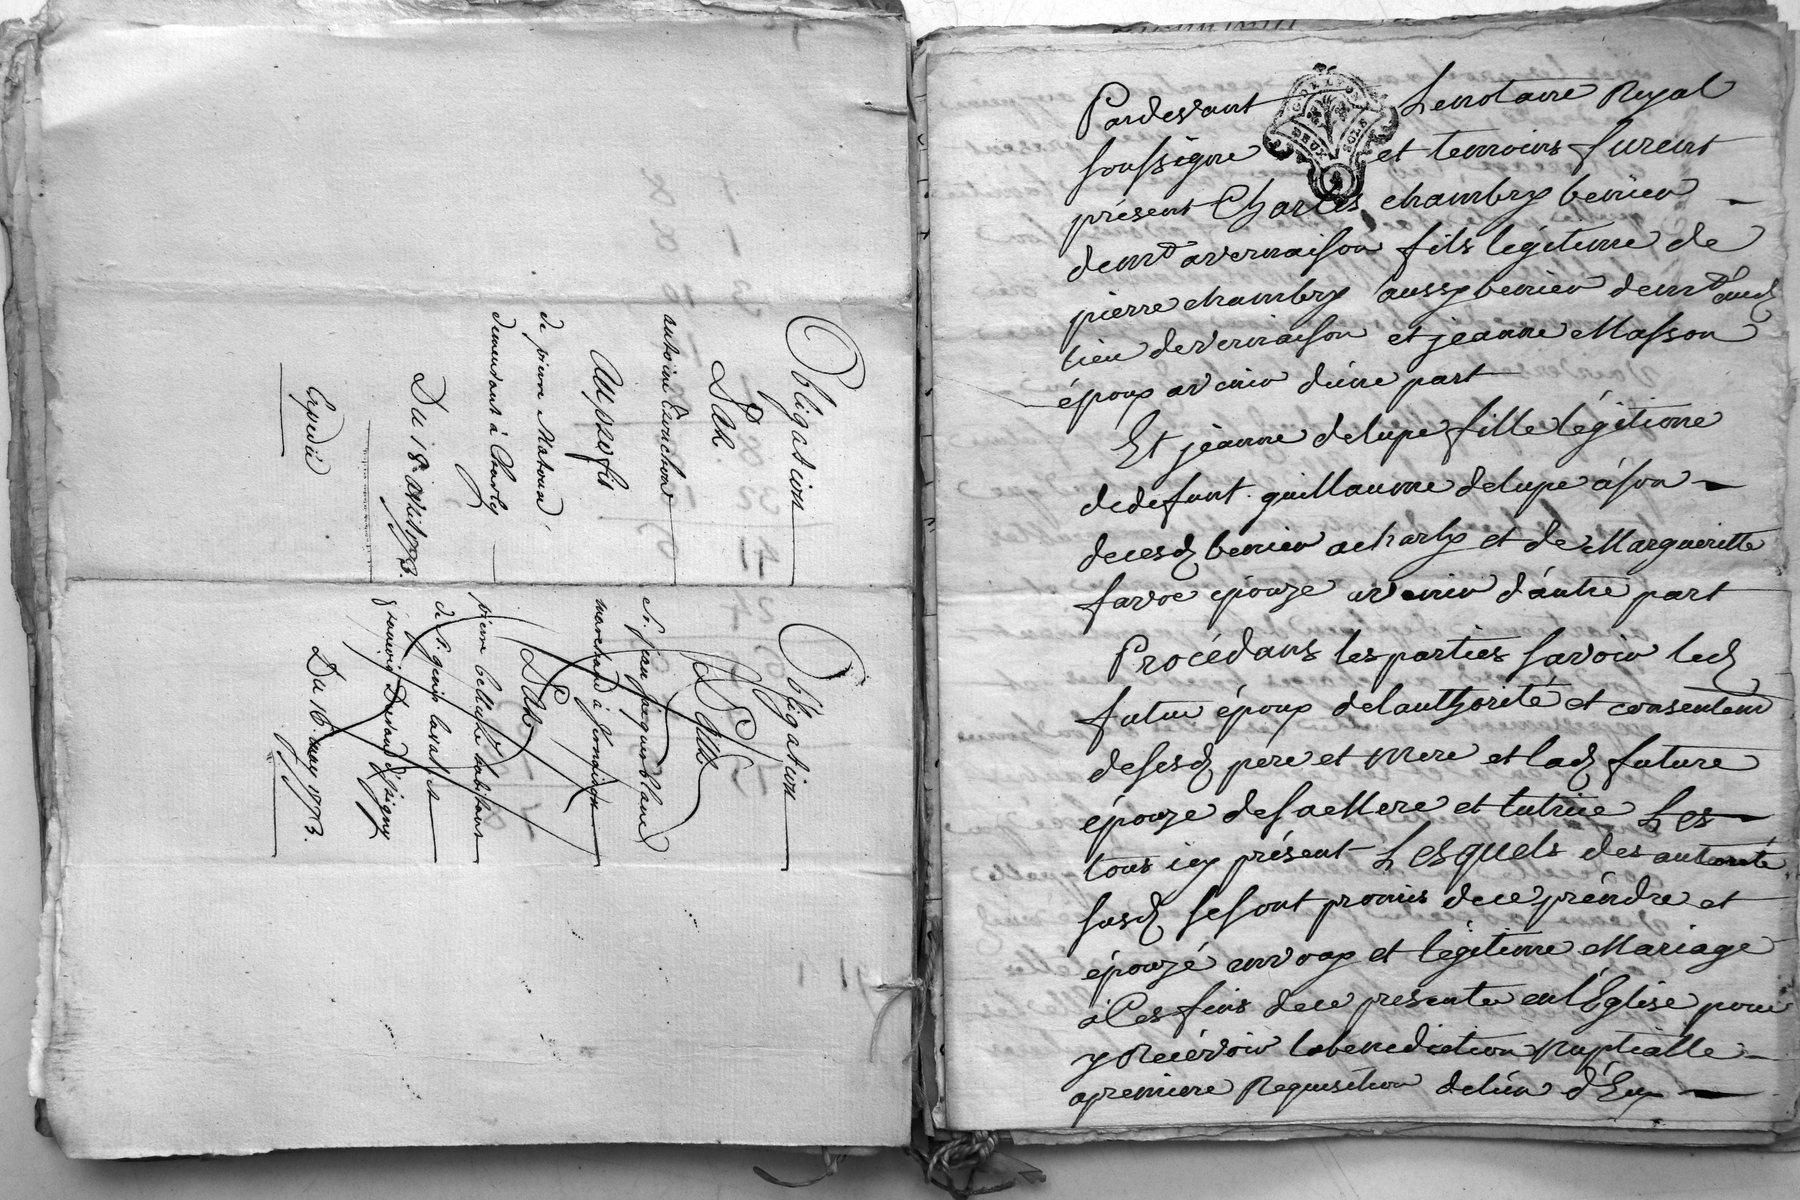 Obligation
antoine
fils
de pierre
demeurant à Charly
Du 18 avril 1773.
Expedié
Obligation
Sr. jean jacques blanc
marchand à Vernaison
pierre habitans
de St. genis laval et
Du 16 may 1773.
GEN. LYON
DEUX SOLS
Pardevant Le notaire Royal
soussigne et temoins furent
présent Charles chambry
demt a vernaison fils légitime de
pierre chambry aussy demt aud
lieu de vernaison et jeanne Masson
époux avenir d'une part
Et jeanne delupe fille légitime
de defunt guillaume delupe à son
deces a charly et de Margueritte
favre épouze avenir d'autre part
Procédans les parties savoir led
futur époux de l'authorité et consentem
de sesd pere et mere et lad future
épouze de sa Mere et tutrice Les
tous icy présent Lesquels des autorité
susd se sont promis de ce préndre et
épouzé en vray et légitime Mariage
à Ces fins de ce presenter en l'Eglise pour
y Recevoir la benediction Nuptialle
a premiere Requisition de l'un d'Eux